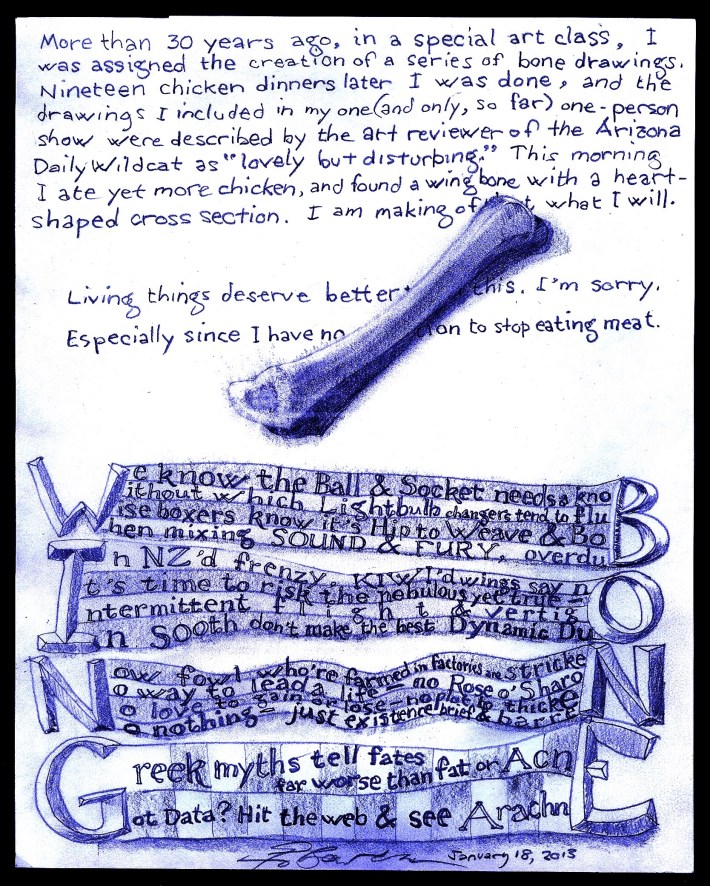 More than 30 years ago, in a special art class, I
was assigned the creation of a series of bone drawings.
Nineteen chicken dinners later I was done, and the
drawings I included in my one (and only, so far) one-person
show were described by the art reviewer of the Arizona
Daily Wildcat as "lovely but disturbing." This morning
I ate yet more chicken, and found a wing bone with a heart-
shaped cross section. I am making of t what I will.
Living things deserve better this. I'm sorry.
Especially since I have no on to stop eating meat.
We know the Ball & Socket needs a knoB
ithout which Lightbulb changers tend to flu
ise boxers know it's Hip to Weave & Bo
hen mixing SOUND & FURY, overdu
In NZ'd frenzy, KIWI'd wings say nO
t's time to risk the nebulous yet true –
ntermittent flight & vertig
n Sooth don't make the best Dynamic Du
Now fowl who're farmed in factories are strickeN
o way to lead a life – no Rose o' Sharo
o love to gain or lose – no plot to thicke
o nothing – just existence brief & barre
Greek myths tell fates far worse than fat or AcnE
ot Data? Hit the web & see Arachn
January 18, 2013